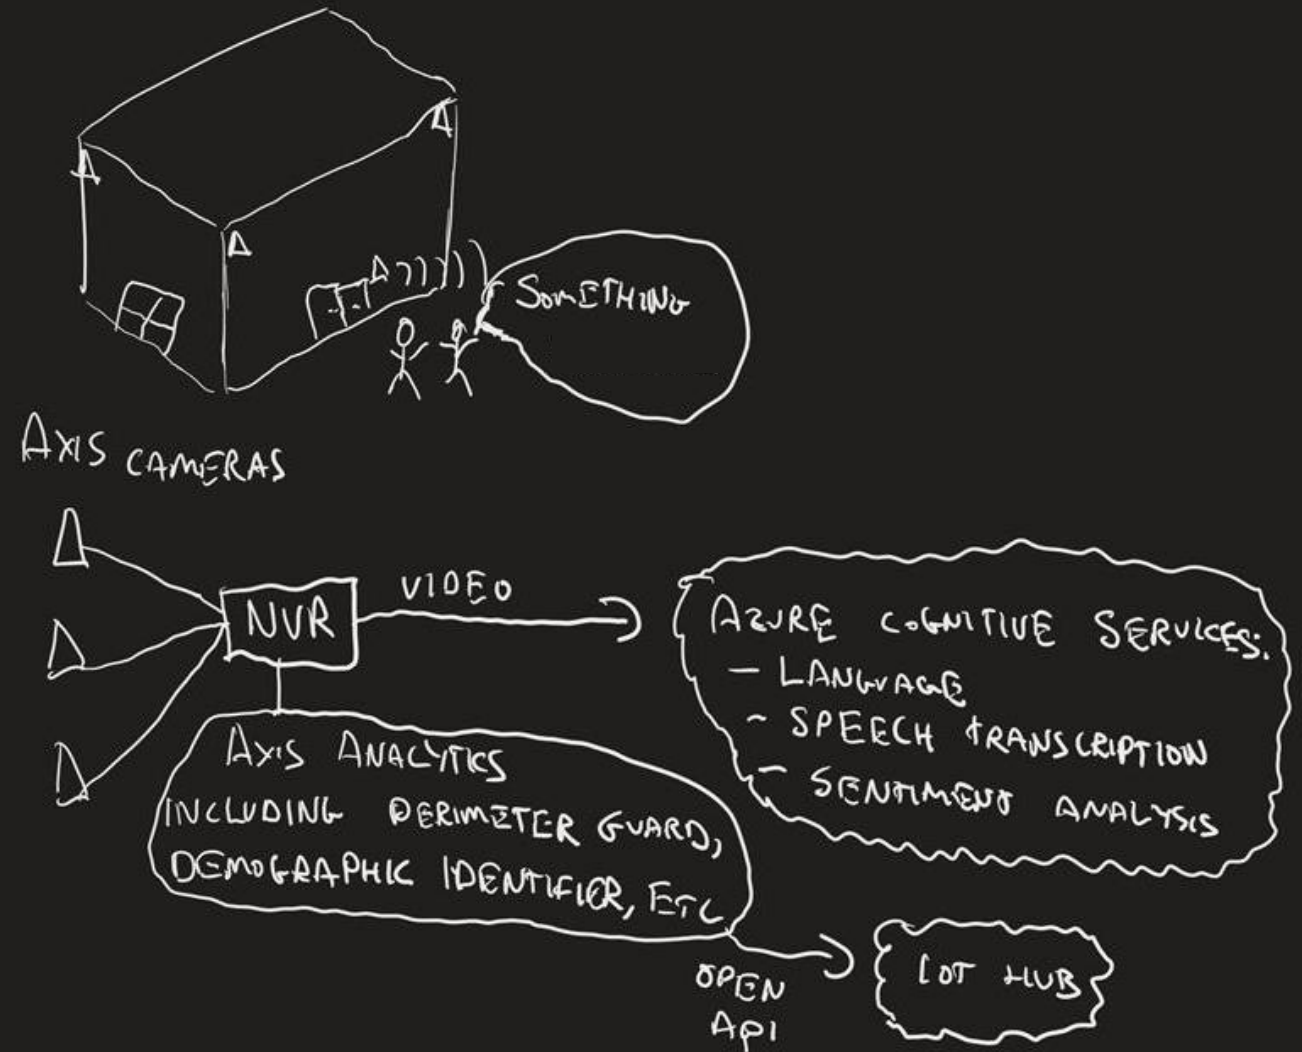 SOMETHING
AXIS CAMERAS
VIDEO
NVR
AZURE COGNITIVE SERVICES:
- LANGUAGE
- SPEECH TRANSCRIPTION
- SENTIMENT ANALYSIS
AXIS ANALYTICS
INCLUDING PERIMETER GUARD,
DEMOGRAPHIC IDENTIFIER, ETC
OPEN
API
IOT HUB